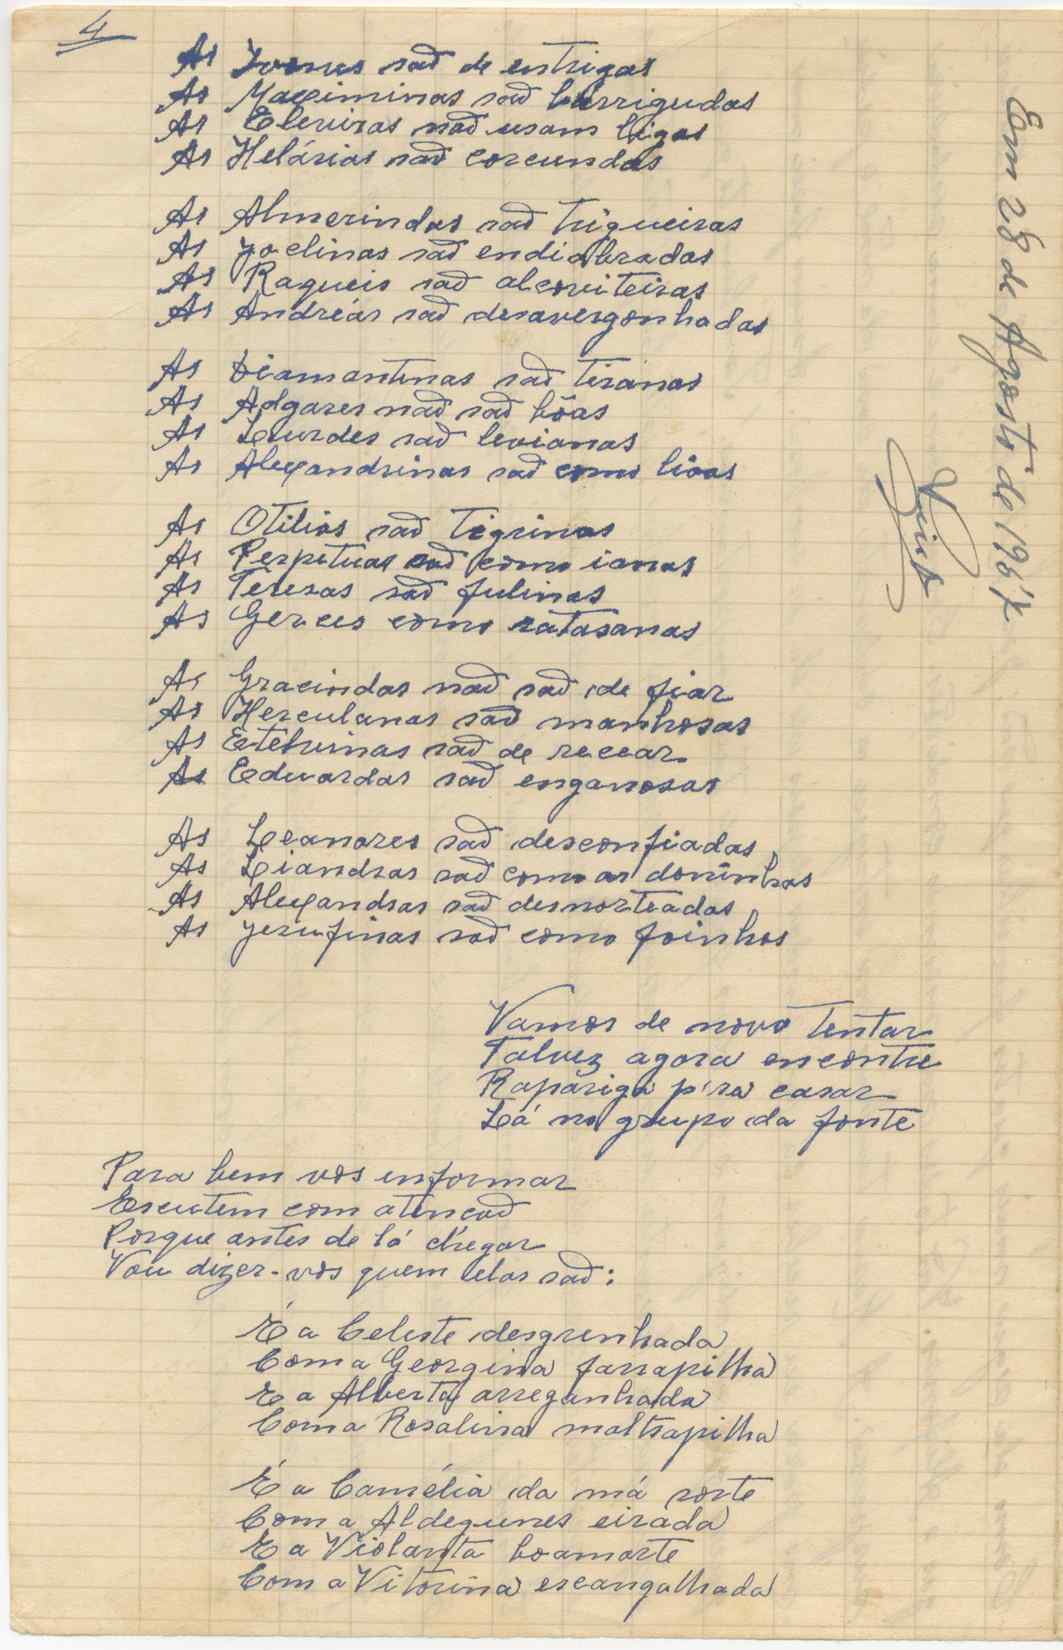 4
As Ivones saõ de entrigas
As Maximinas saõ bàrrigudas
As Elviras naõ usam ligas
As Helárias saõ corcundas
As Almerindas saõ trigueiras
As Joclinas saõ endiabradas
As Raqueis saõ alcoviteiras
As Andreás saõ desavergonhadas
As Diamantinas saõ tiranas
As Adgares naõ saõ bôas
As Lurdes saõ levianas
As Alexandrinas saõ como liôas
As Otilias saõ tigrinas
As Perpetuas saõ como ianas
As Teresas saõ fulinas
As Gerces como ratasanas
As Gracindas naõ saõ de fiar
As Herculanas saõ manhosas
As Etelvinas saõ de recear
As Eduardas saõ enganosas
As Leanores saõ desconfiadas
As Liandras saõ como as doninhas
As Alexandras saõ desnorteadas
As Jerufinas saõ como foinhas
Vamos de novo tentar
Talvez agora encontre
Rapariga p'ra casar
Lá no grupo da fonte
Para bem vos informar
Escutem com atencaõ
Porque antes de lá chegar
Vou dizer-vos quem elas saõ:
É a Celeste desgrenhada
Com a Georgina farrapilha
E a Alberta arreganhada
Com a Rosalina maltrapilha
É a Camélia da má sorte
Com a Aldegunes eirada
E a Violanta boamorte
Com a Vitorina escangalhada
Em 28 de Agosto de 1967